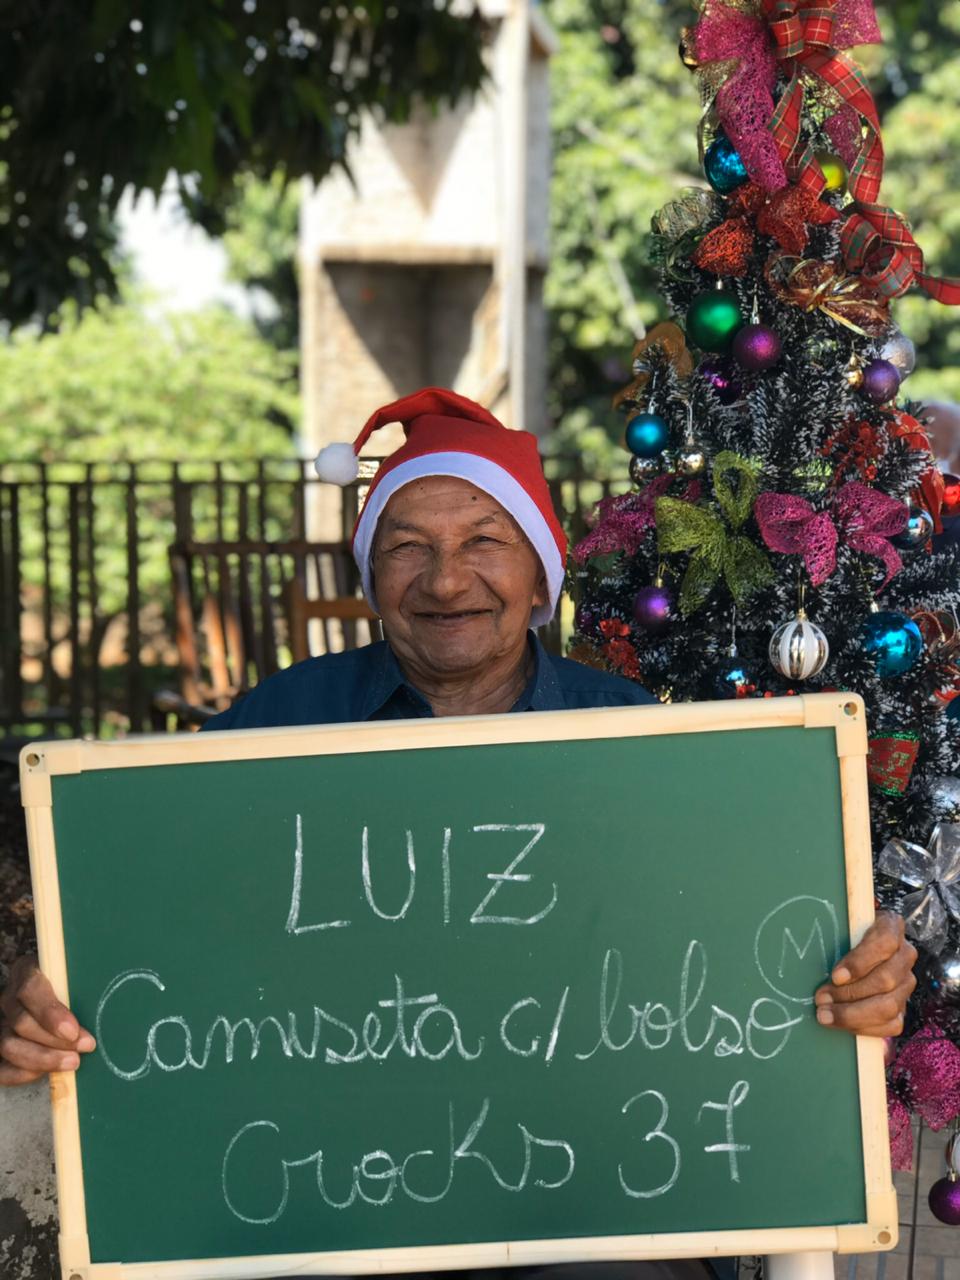 LUIZ
Camiseta c/ bolso M
Crocks 37